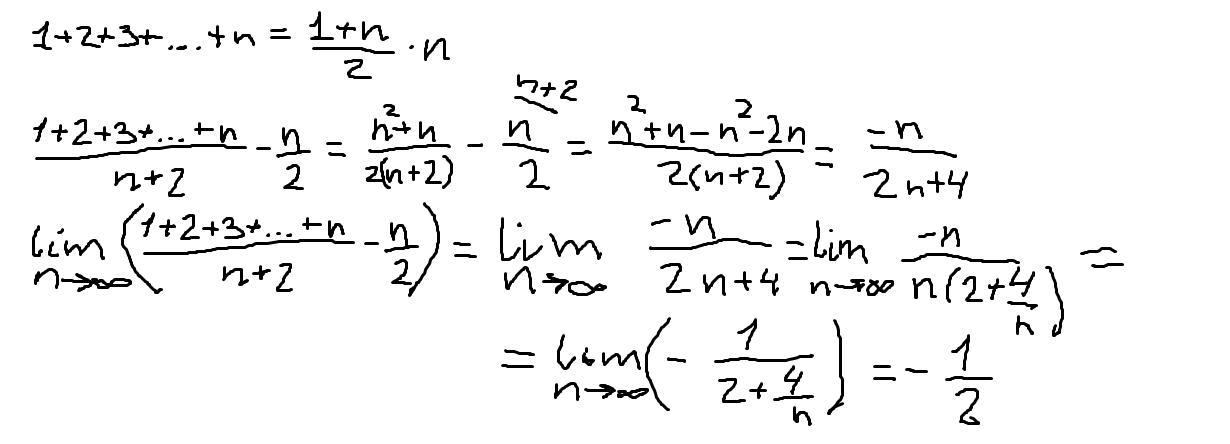 1+2+3+...+n = \frac{1+n}{2} · n
\frac{1+2+3+...+n}{n+2} - \frac{n}{2} = \frac{n^2+n}{2(n+2)} - \frac{n}{2}^{n+2} = \frac{n^2+n-n^2-2n}{2(n+2)} = \frac{-n}{2n+4}
\lim_{n→∞} (\frac{1+2+3+...+n}{n+2} - \frac{n}{2}) = \lim_{n→∞} \frac{-n}{2n+4} = \lim_{n→∞} \frac{-n}{n(2+\frac{4}{n})} =
= \lim_{n→∞} (- \frac{1}{2+\frac{4}{n}}) = - \frac{1}{2}